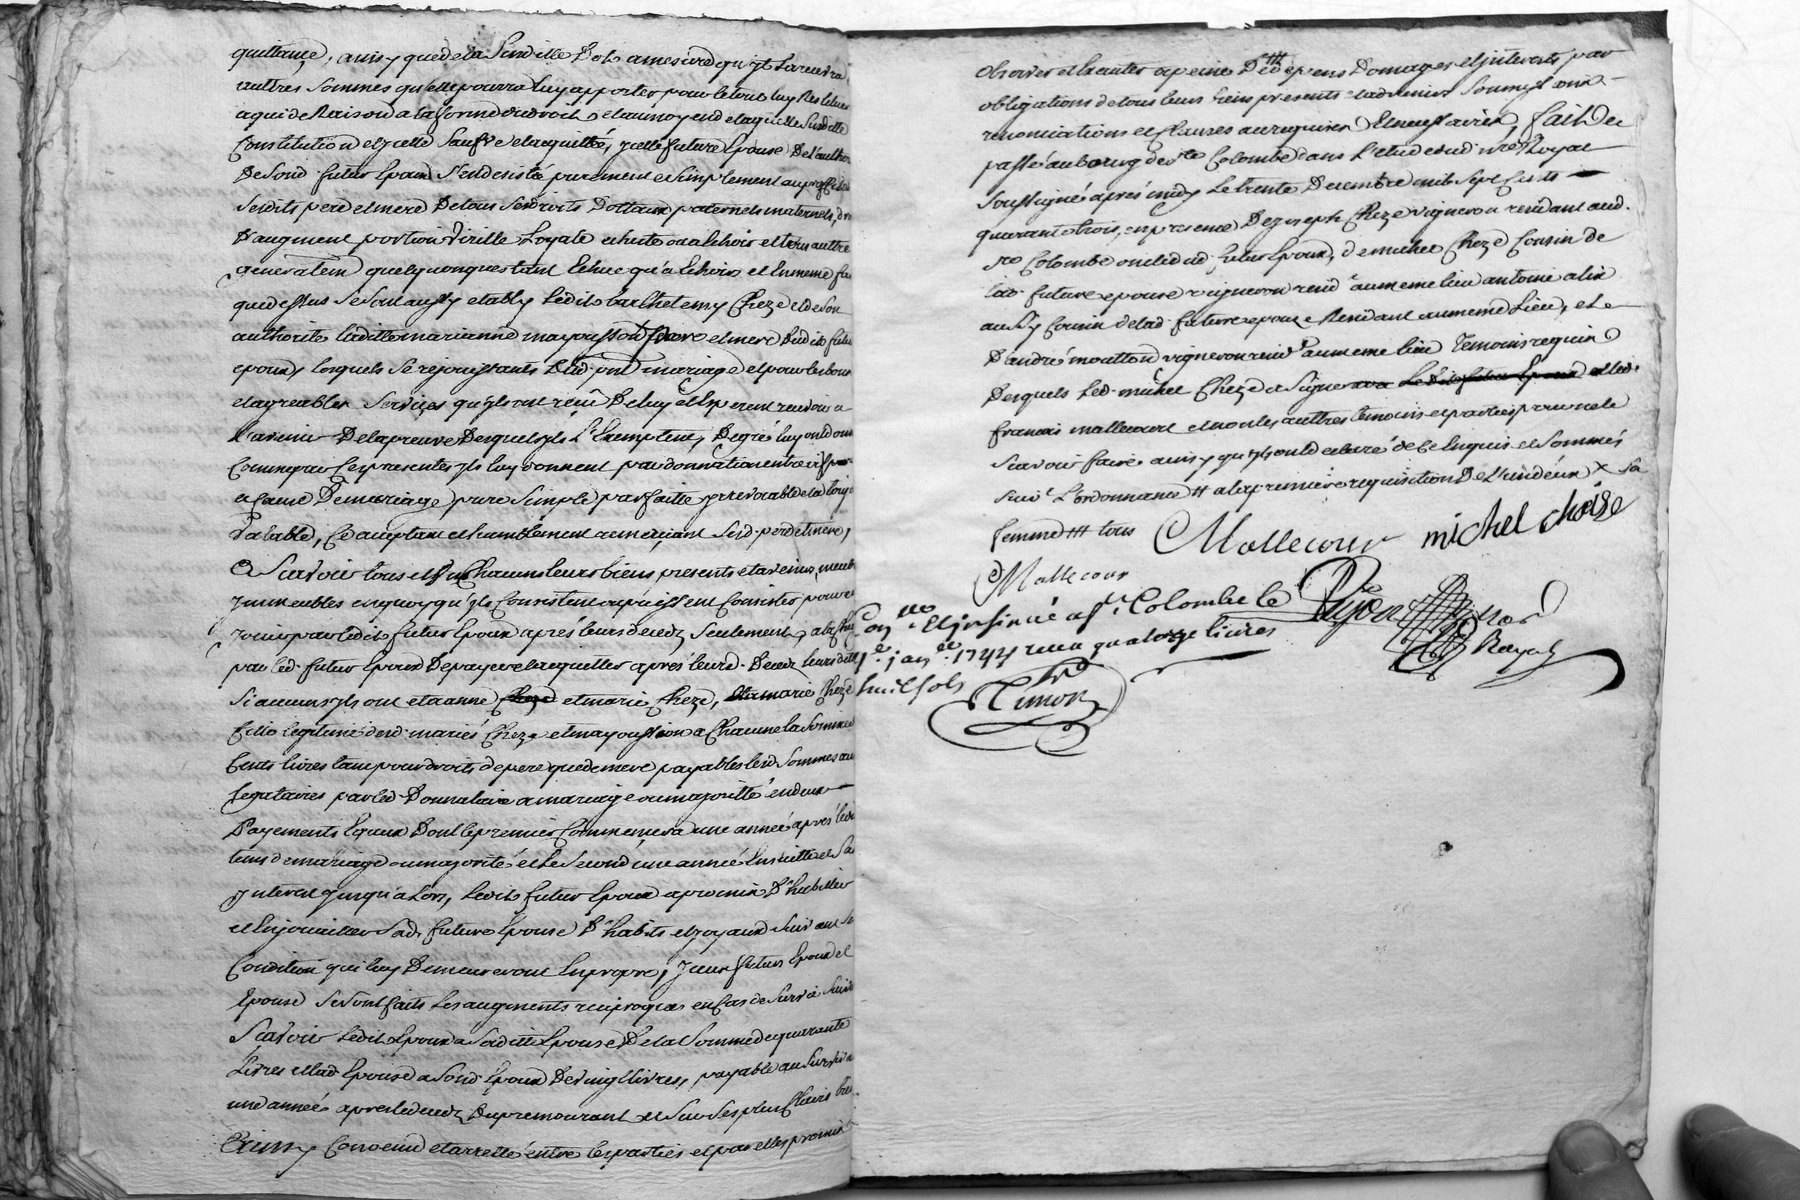 quittance, ainsy que de la Susdille Dot a mesure qu'jl Larecevra
autres Sommes qu'elle pourra luy apporter pour le tout luy Restituer
a qui de Raison a la forme du droit, et au moyend de laquelle Susditte
Constitution et jcelle Sauf Ve et acquittée, jcelle future Epouse De l'autho
De Sond. futur Epoux S'end est desisté purement et Simplement au proffit de
Sesdits pere et mere De tous Ses droits Dottaux paternels maternels, dr
D'augment portion Virille Loyale echute ou a Echoir et tous autre
generalem. quelquonques tant Echue qu'a Echoir et En meme fa
que dessus Se Sont aussy etably Ledits barthelemy Cheze et de Son
authorité laditte marianne mayoussond pere et mere Dudit futu
epoux, lesquels Se rejouissants Dud. pnt mariage et pour les bons
et agreables Services qu'jls ont reçu De luy et Esperent recevoir a
L'avenir De la preuve Desquels jls L'Exemptent, De gré luy ont don
Comme par Ces presentes jls luy donnent par donnation entre vifs
a Cause De mariage pure Simple parfaitte jrrevocable et a toujo
Valable, Ce acceptant et humblement remerciant Sesd. pere et mere,
a Scavoir tous et Un Chacuns leurs biens presents et avenir, meubl
jmmeubles en quoy qu'jls Consistent ou puissent Consister pour en
jouir par ledit futur Epoux aprés leurs deceds Seulement, a la Char
par led. futur Epoux De payer et acquitter aprés leurd. Deceds leurs dette
Si aucuns jls ont et a anne Cheze et marie Cheze, et a marie Cheze
fille legitime desd. mariés Cheze et mayoussion a Chacune la Somme de
Cents livres tant pour droits de pere que de mere payables lesd. Sommes au
Legataires par led. Donnataire a mariage ou majorité en deux
Payements Egaux Dont le premier Commencera une année aprés led
tems de mariage ou majorité et Le Second une année Ensuitte et Sa
jnterest jusqu'a Lors, Ledits futur Epoux a promis D'habiller
et Enjouailler Sad. future Epouse D'habits et joyaux Suivant Sa
Condition qui luy Demeureront En propre, Jceux futurs Epoux et
Epouse Se Sont faits Les augments reciproques en Cas de Survie Suiv
Scavoir Ledit Epoux a Saditte Epouse De la Somme de quarante
Livres et lad. Epouse a Sond. Epoux De vingt livres, payable au Survivan
une année apres le deceds Du premourant et Sur Ses plus Clairs bie
Ainsy Convenu et arretté entre les parties et par elles promis
observer et Executer a peine De tt depens Domages et jnterests par
obligations de tous leurs biens presents et advenir Soumissions
renonciations et Clauses au requises Et necessaires, fait et
passé au bourg de Ste Colombe dans L'etude dud. nre Royal
Soussigné aprés midy Le trente Decembre mil Sept Cents
quarante trois, en presence De joseph Cheze vigneron residant aud.
Ste Colombe oncle dud. futur Epoux, de michel Cheze Cousin de
lad. future epouse vigneron resid. au meme lieu antoine alix
aussy Cousin de lad. future epouze Residant au meme Lieu, et
D'andré moutton vigneron resid. au meme lieu Temoins requis
Desquels Led. michel Cheze a Signé avec Ledits futur Epoux et led.
francois mallecour et non les autres temoins et parties pour ne le
Scavoir faire ainsy qu'jls ont declaré de Ce Enquis et Sommés
Suivt. L'ordonnance # a la premiere requisition De L'undeux x Sa
femme ### tous Mallecour michel choise
Mallecour
Conlé. Et jnsinué a Ste. Colombe le Dujon nore
1er. janer. 1744 receu quatorze livres Royal
huit sols Simon